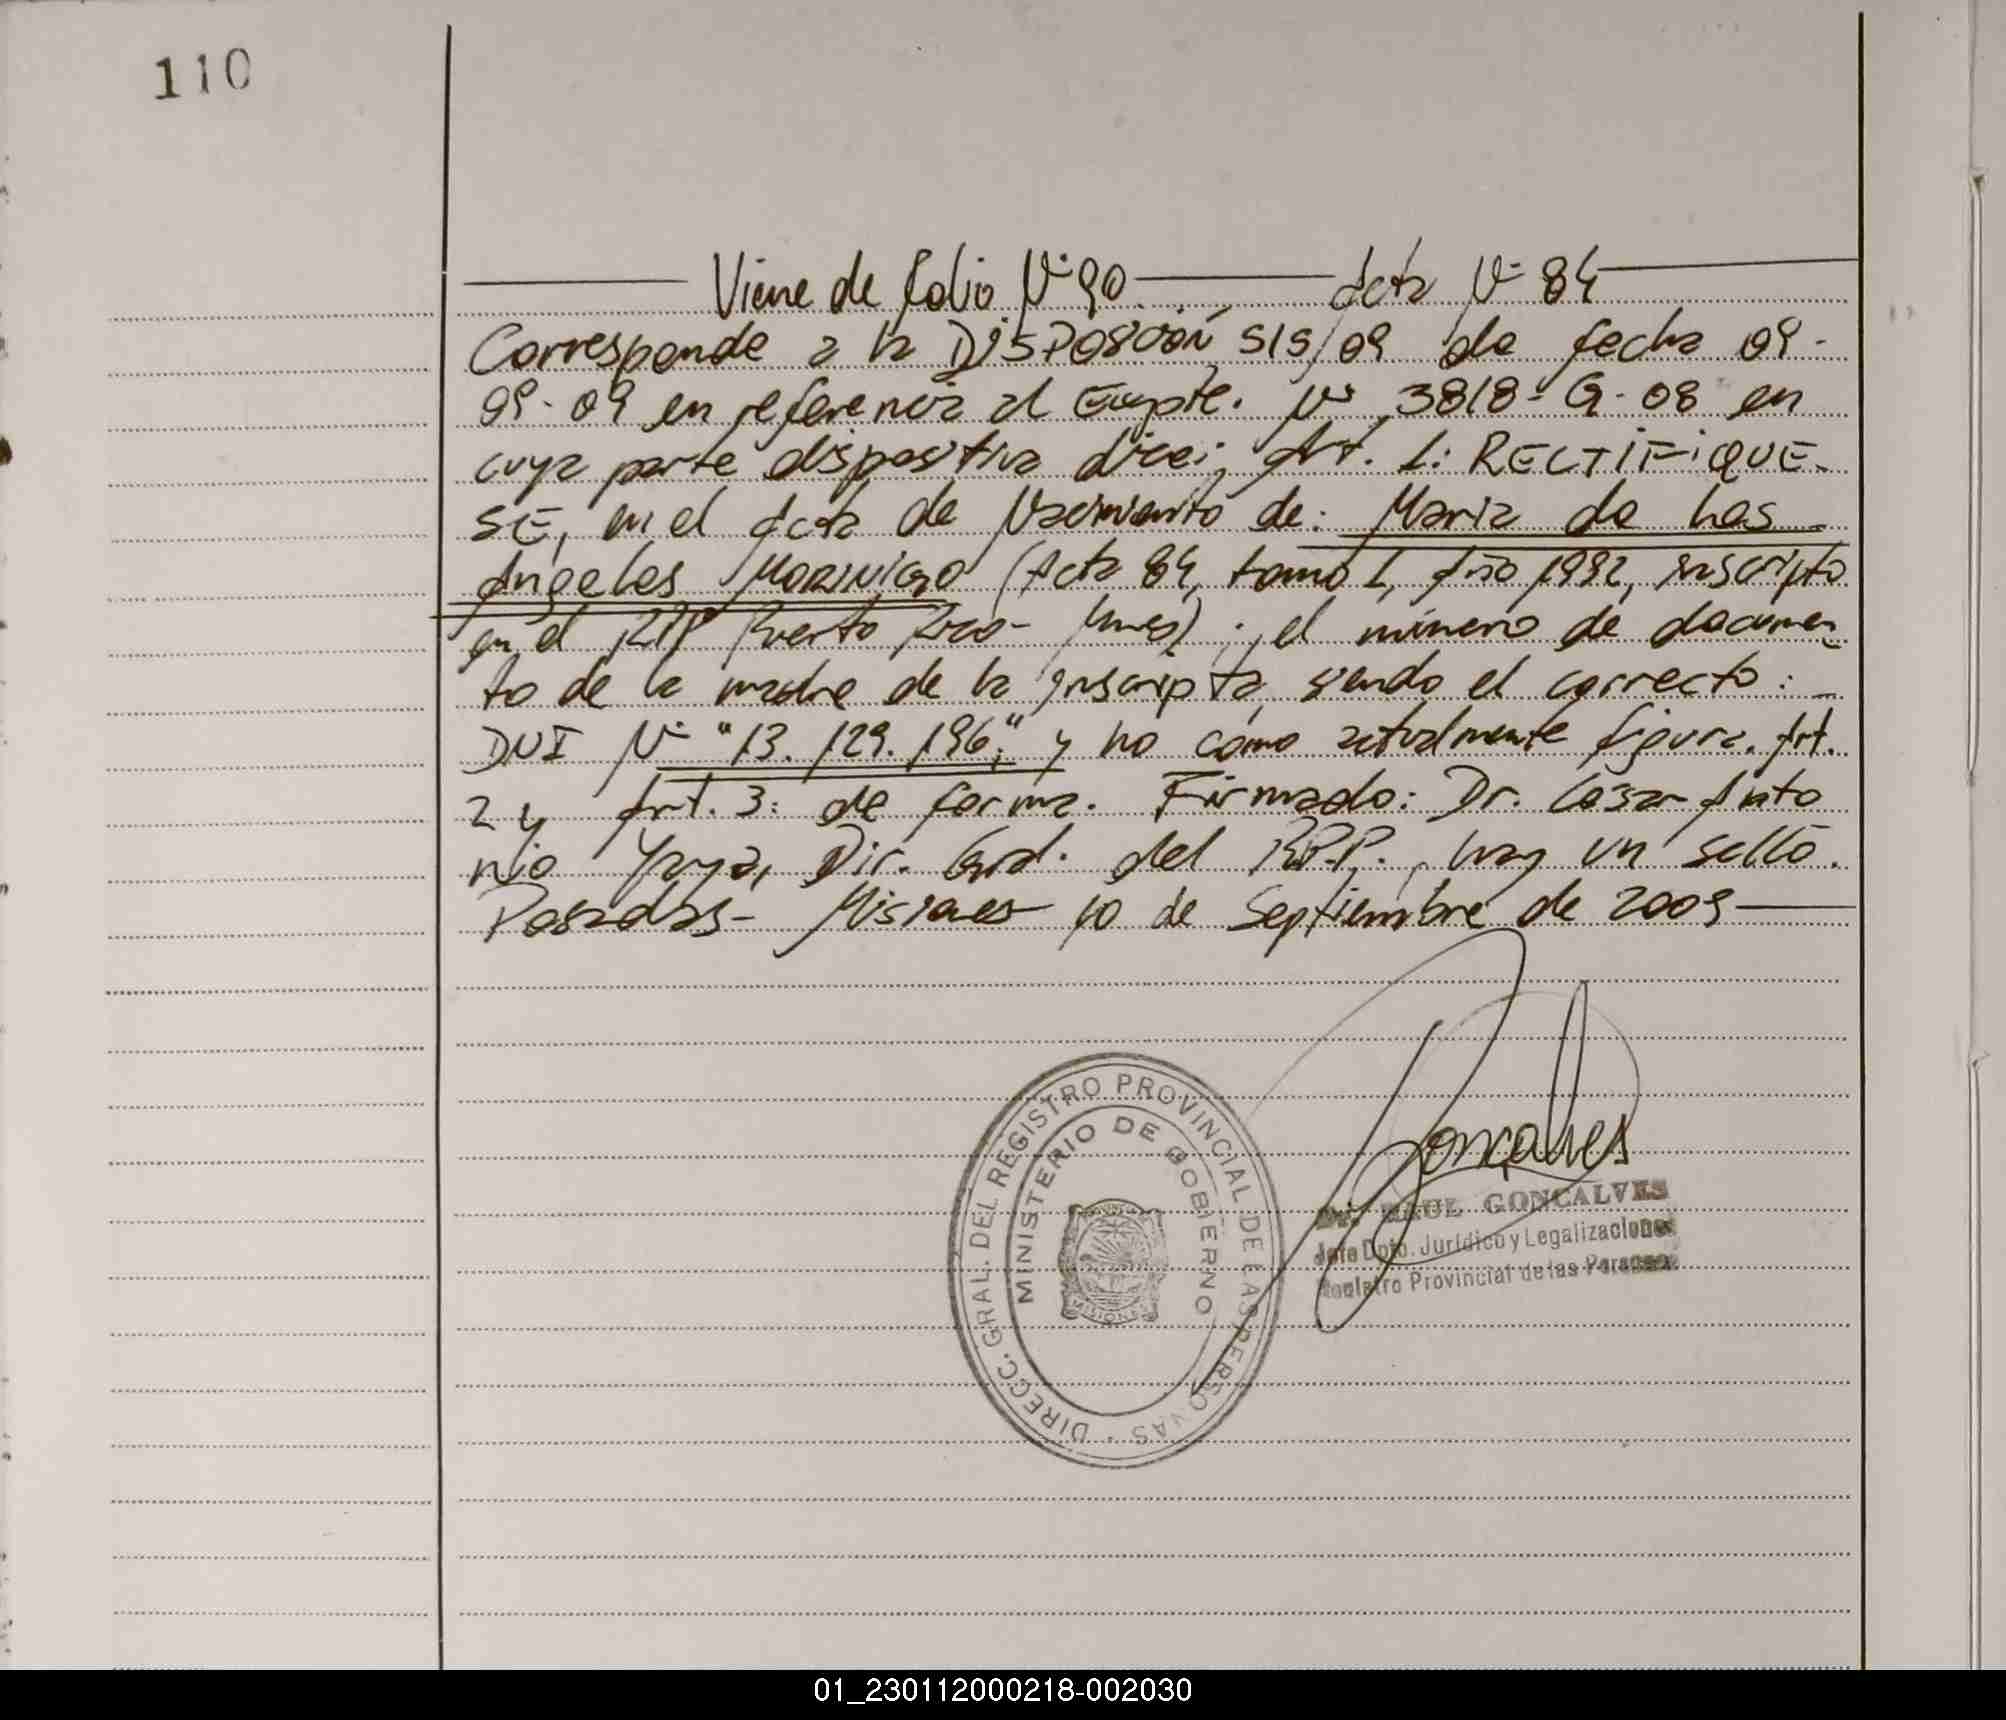 110
Viene de folio Nº 90 Acta Nº 84
Corresponde a la DISPOSICIÓN 515/09 de fecha 09-
09-09 en referencia al Expte. Nº 3818-G-08 en
cuya parte dispositiva dice: Art. 1: RECTIFIQUE-
SE, en el Acta de Nacimiento de: Maria de Los
Angeles MORINIGO (Acta 84, tomo 1, Año 1992, inscripto
en el RPP Puerto Rico- Mnes) ; el número de documen-
to de la madre de la inscripta siendo el correcto: -
DNI Nº "13.129.196," y no como actualmente figura. Art.
2 y Art. 3: de forma. Firmado: Dr. César Anto
nio Yaya, Dir. Gral. del RPP., hay un sello.
Posadas- Misiones 10 de Septiembre de 2009
DIRECC. GRAL. DEL REGISTRO PROVINCIAL DE LAS PERSONAS
MINISTERIO DE GOBIERNO
MISIONES
Gonçalves
Dr. RAUL GONCALVES
Jefe Dpto. Jurídico y Legalizaciones
Registro Provincial de las Personas
01_230112000218-002030